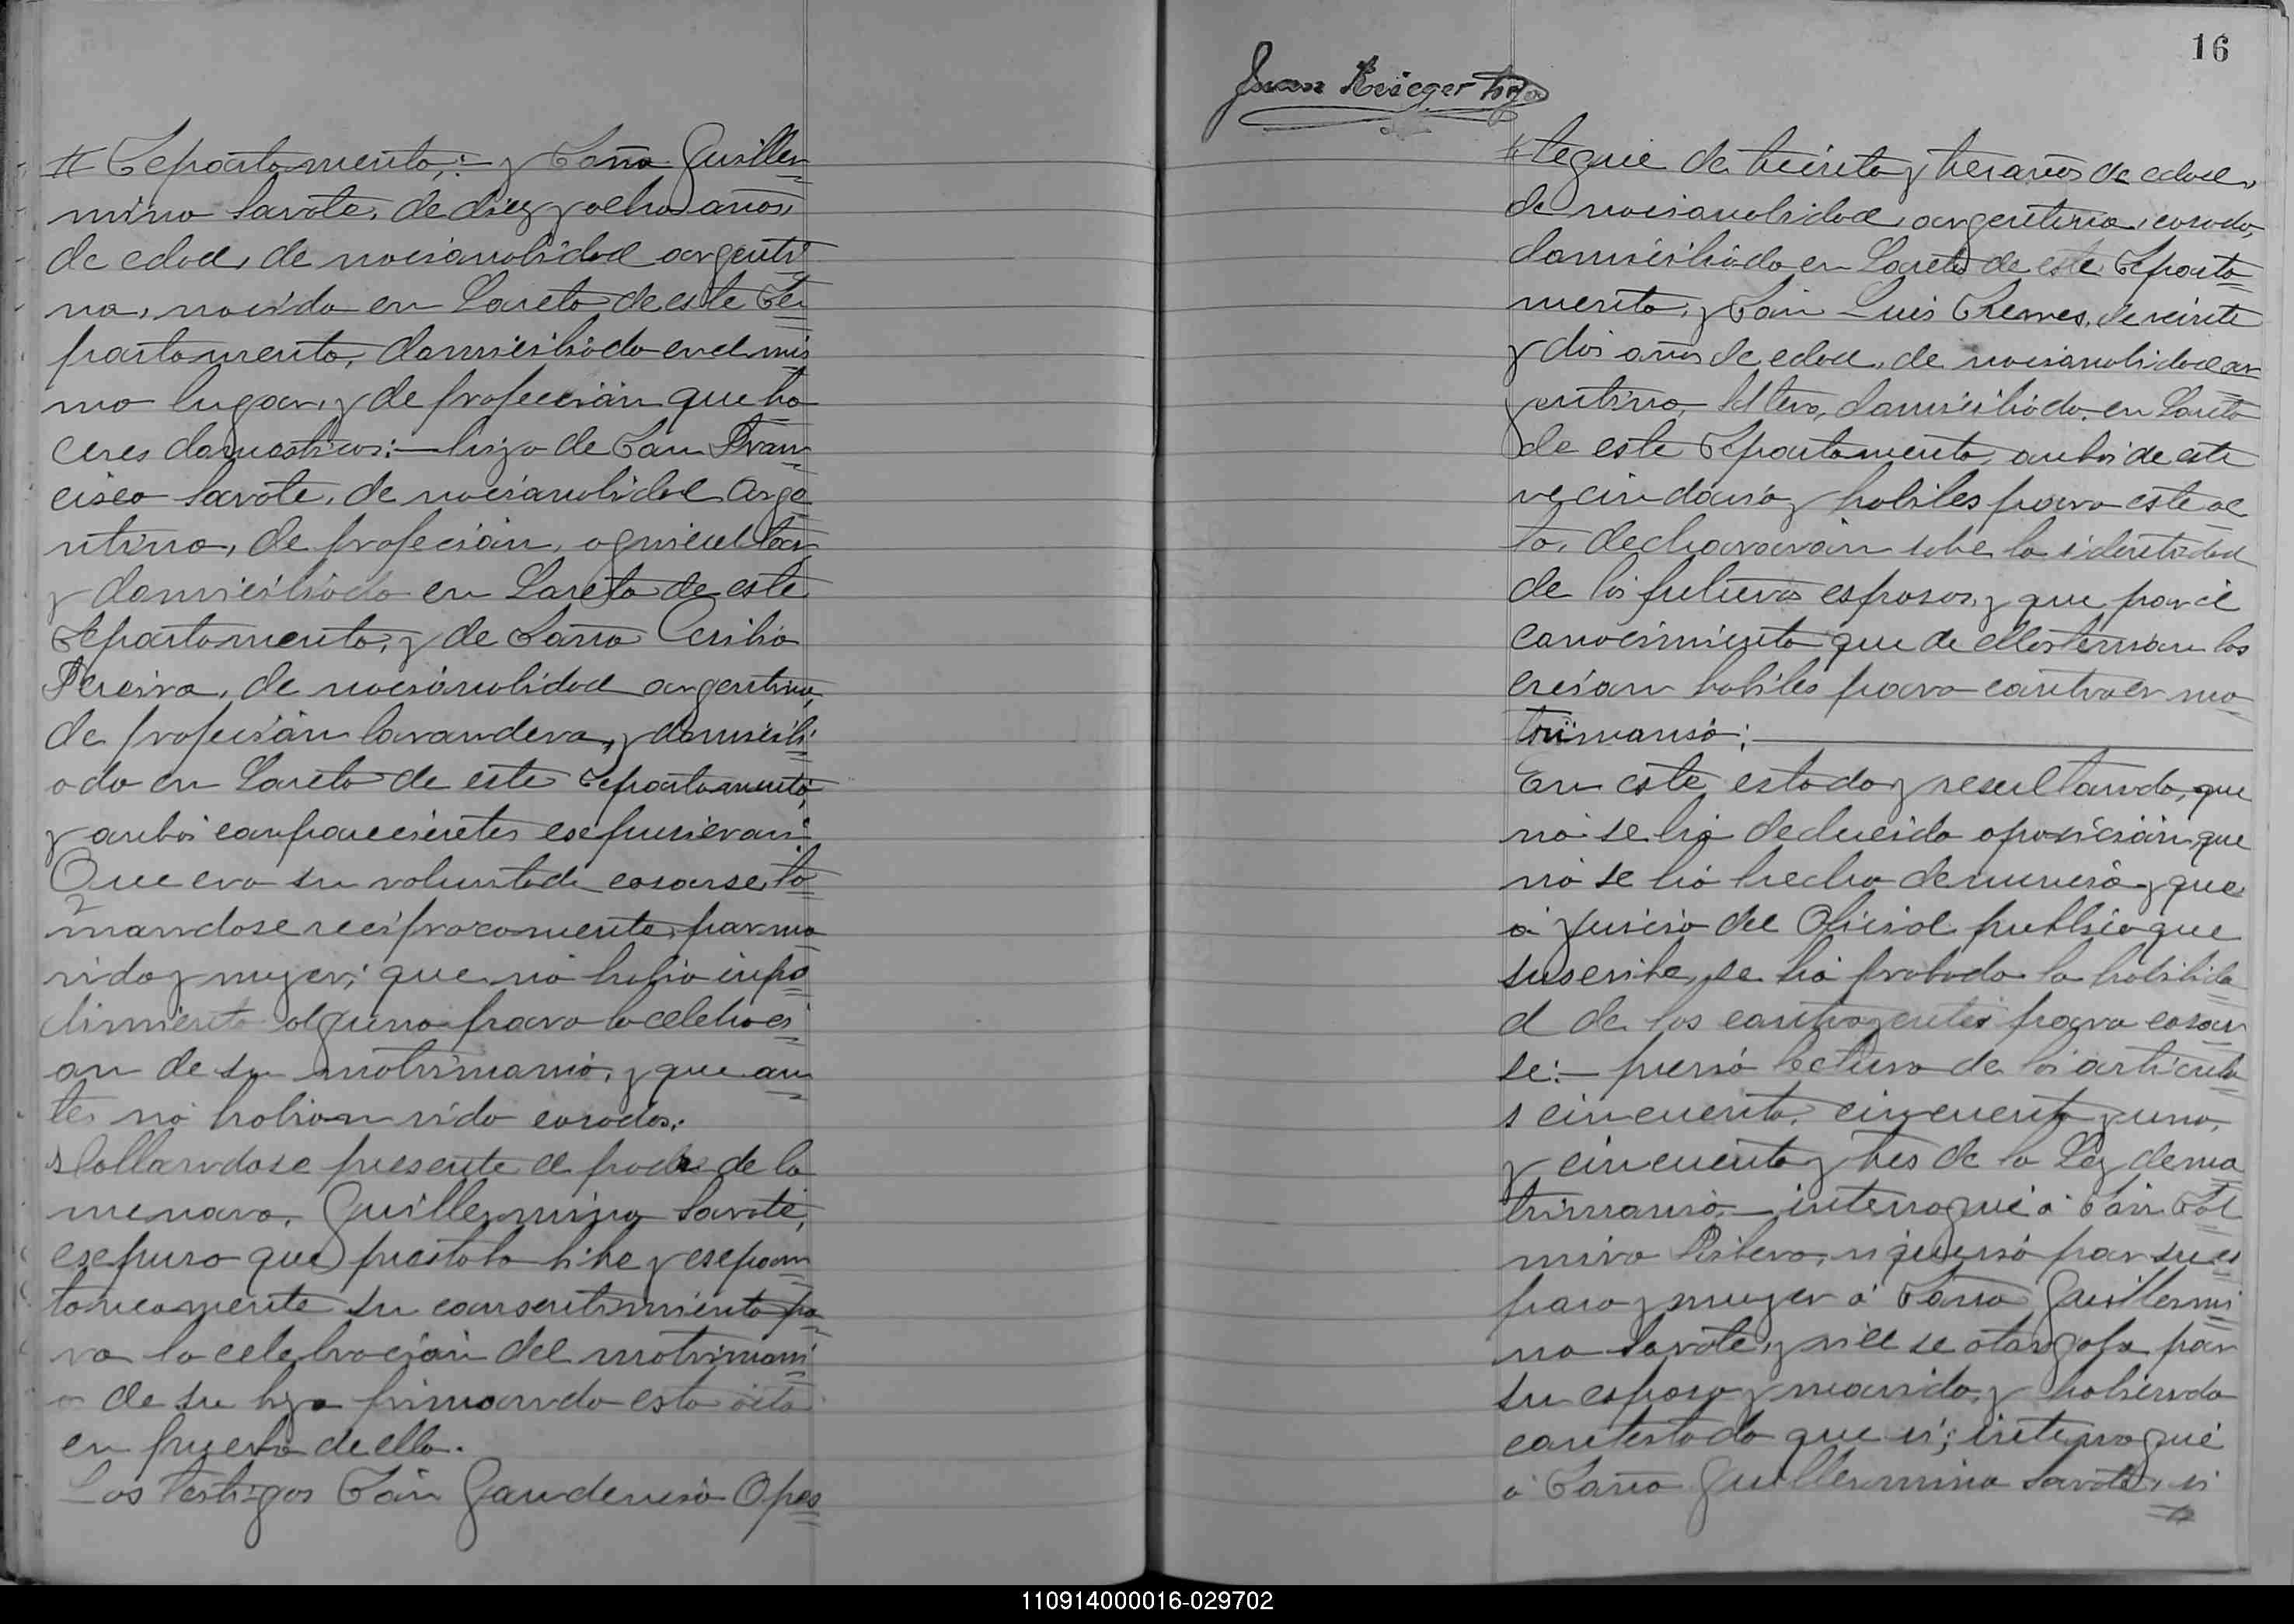 # Departamento; y Doña Guiller
mina Sarote, de diez y ocho años,
de edad, de nacionalidad argenti
na, nacida en Loreto de este De
partamento, domiciliada en el mis
mo lugar, y de profeción queha
ceres domesticos:— hija de Don Fran
cisco Sarote, de nacionalidad Arge
ntina, de profeción, agricultor
y domiciliado en Loreto de este
Departamento, y de Doña Cecilia
Pereira, de nacionalidad argentina,
de profeción lavandera, y domicili
ada en Loreto de este Departamento,
y ambos comparecientes expusieron:
Que era su voluntad casarse, to
mandose reciprocamente, por ma
rido y mujer; que no habia impe
dimiento alguno para la celebraci
on de su matrimonio, y que an
tes no habian sido casados.
Hallandose presente el padre de la
menora, Guillermina Sarote,
expuso que prestaba libre y espon
taneamente su consentimiento pa
ra la celebración del matrimoni
o de su hija firmando esta acta
en prueba de ella.
Los testigos Don Gaudencio Opes
16
Juan Krieger
# tegui de treinta y tres años de edad,
de nacionalidad, argentina, casado,
domiciliado en Loreto de este Departa
mento, y Don Luis Chemes, de veinte
y dos años de edad, de nacionalidad ar
gentina, soltero, domiciliado en Loreto
de este Departamento, ambos de este
vecindario y habiles para este ac
to, declararon sobre la identidad
de los futuros esposos, y que por el
conocimiento que de ellos tenian los
creian habiles para contraer ma
trimonio;
En este estado y resultando, que
no se ha deducido oposición, que
no se ha hecho denuncia y que
á juicio del Oficial publico que
suscribe, se ha probado la habilida
d de los contrayentes para casar
se:— previa lectura de los articulo
s cincuenta, cincuenta y uno,
y cincuenta y tres de la Ley de ma
trimonio.— interrogué á Don
si queria por su es
posa y mujer á Doña Guillermi
na Sarote, y si él se otorgaba por
su esposo y marido, y habiendo
contestado que si; interrogué
á Doña Guillermina Sarote, si
#
110914000016-029702